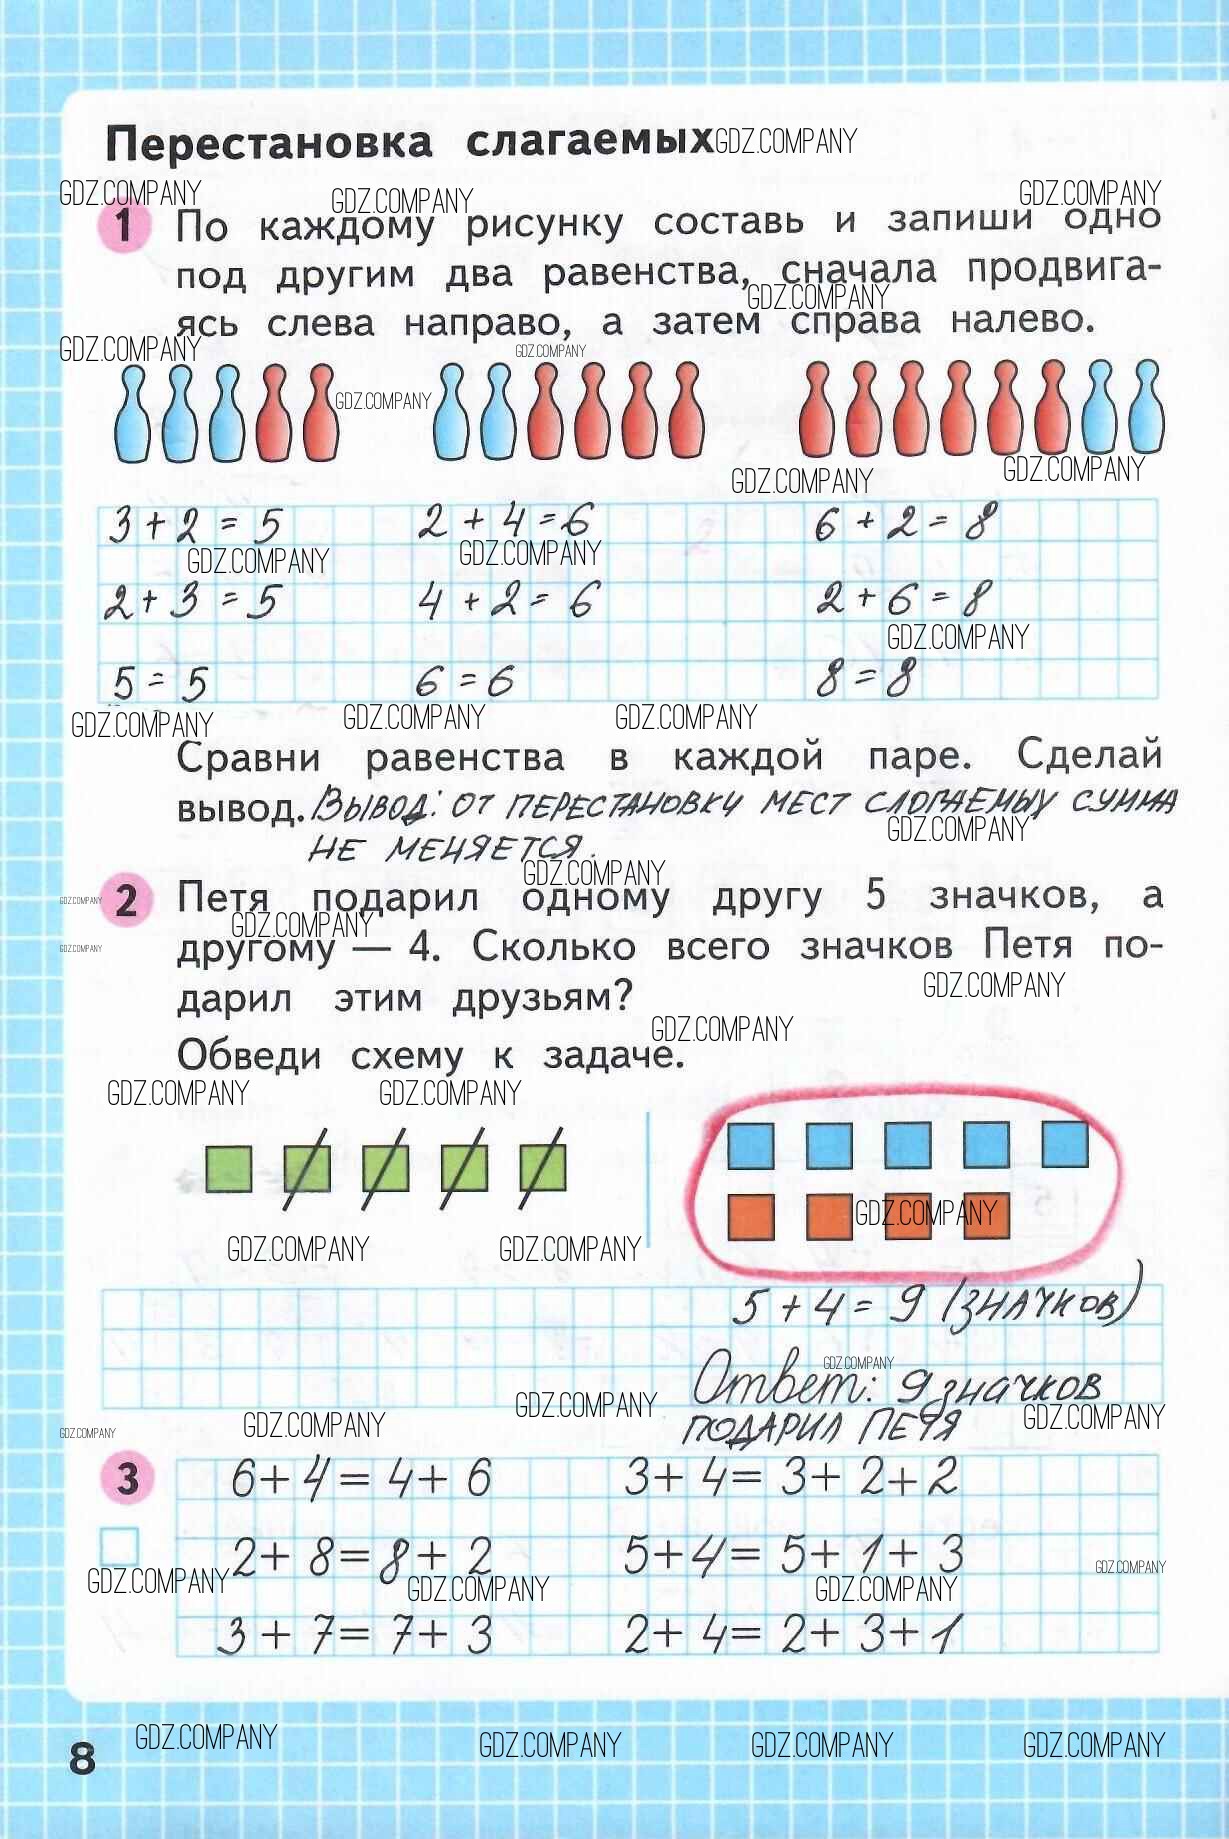 Перестановка слагаемых GDZ.COMPANY
GDZ.COMPANY GDZ.COMPANY GDZ.COMPANY
1 По каждому рисунку составь и запиши одно
под другим два равенства, сначала продвига-
GDZ.COMPANY
ясь слева направо, а затем справа налево.
GDZ.COMPANY GDZ.COMPANY
GDZ.COMPANY
GDZ.COMPANY GDZ.COMPANY
3 + 2 = 5 2 + 4 = 6 6 + 2 = 8
GDZ.COMPANY GDZ.COMPANY
2 + 3 = 5 4 + 2 = 6 2 + 6 = 8
GDZ.COMPANY
5 = 5 6 = 6 8 = 8
GDZ.COMPANY GDZ.COMPANY GDZ.COMPANY
Сравни равенства в каждой паре. Сделай
вывод. Вывод: от перестановки мест слогаемых сумма
GDZ.COMPANY
не меняется.
GDZ.COMPANY
2 Петя подарил одному другу 5 значков, а
GDZ.COMPANY GDZ.COMPANY
другому — 4. Сколько всего значков Петя по-
GDZ.COMPANY
GDZ.COMPANY
дарил этим друзьям?
GDZ.COMPANY
Обведи схему к задаче.
GDZ.COMPANY GDZ.COMPANY
GDZ.COMPANY
GDZ.COMPANY GDZ.COMPANY
5 + 4 = 9 (значков)
GDZ.COMPANY
Ответ: 9 значков
GDZ.COMPANY GDZ.COMPANY GDZ.COMPANY
подарил Петя
GDZ.COMPANY
3 6 + 4 = 4 + 6 3 + 4 = 3 + 2 + 2
2 + 8 = 8 + 2 5 + 4 = 5 + 1 + 3
GDZ.COMPANY GDZ.COMPANY GDZ.COMPANY GDZ.COMPANY
3 + 7 = 7 + 3 2 + 4 = 2 + 3 + 1
8 GDZ.COMPANY GDZ.COMPANY GDZ.COMPANY GDZ.COMPANY